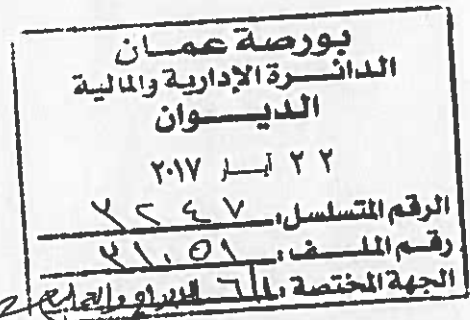 بورصة عمان
الدائرة الإدارية والمالية
الديوان
٢٢ أيار ٢٠١٧
الرقم المتسلسل: ٣٢٤٧
رقم الملف: ٣١٠٥١
الجهة المختصة: الإدراج